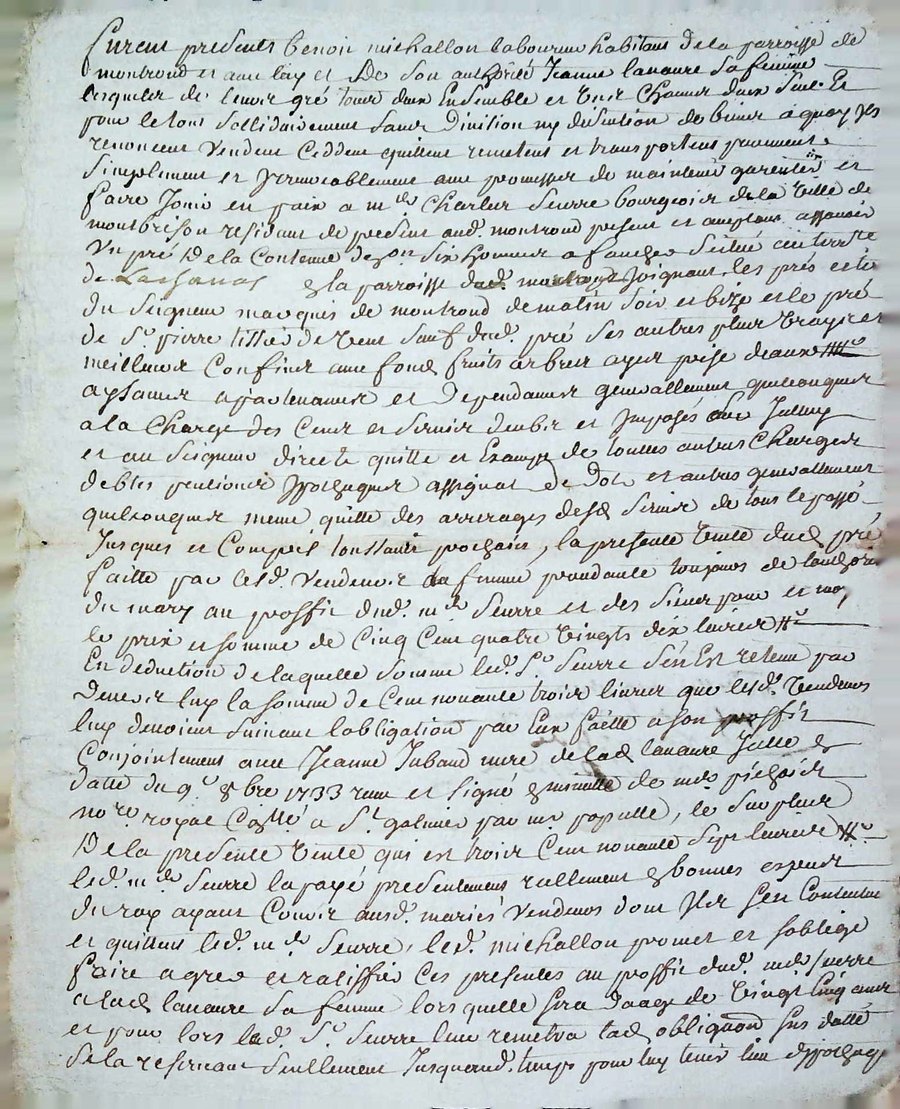 furent presents benoit michallon laboureur habitant de la parroisse de
montrond et avec luy et de son authorité Jeanne lanaure sa femme
lesquels de leur gré tous deux Ensemble et un chacun deux seul Et
pour le tout sollidairement sans division ny discution de biens à quoy Ils
renoncent vendent ceddent quittent remettent et transportent purement
simplement et Irrevocablement avec promesse de maintenir garentir et
faire Jouir en paix a mr. Charles seurre bourgeois de la ville de
montbrison residant de present aud. montrond present et acceptant assavoir
Un pré De la Contenue de six hommes a faucher situé au territoire
de d. la parroisse dud. montrond Joignant les prés
du seigneur marquis de montrond de matin soir et bize et le pré
de sr. pierre de vent sauf dud. pré ses autres plus vrays et
meilleurs Confins avec fonds fruits arbres ayes prise deaux
aysances apartenances et Dependances generallement quelconques
a la Charge des Cens et servis deubs et Imposés
et au seigneur directe quitte et Exempt de toutes autres Charges
debtes pentions Ipotheques assignat de Dot et autres generallement
quelconques meme quitte des arrerages desd. servis de tout le passé
Jusques et Compris prochain, la presente vente dud. pré
faitte par lesd. vendeurs la femme procedante toujours de lauthorité
du mary au proffit dud. mr. seurre et des siens pour et moy.
le prix et somme de Cinq Cent quatre vingts dix livres
En deduction de laquelle somme led. sr. seurre sen Est retenu par
Devers luy la somme de Cent nonante trois livres que lesd. vendeurs
luy devoient suivant lobligation par Eux faitte a son proffit
Conjointement avec Jeanne mere de lad. lanaure Icelle de
datte du 9e 8bre 1733 receue et signé de mr.
nore. royal a st. galmier par mr. papulle, le surplus
De la presente vente qui est trois Cent nonante sept livres
led. mr. seurre la payé presentement reellement bonnes especes
du roy ayant Cours ausd. mariés vendeurs dont Ils sen Contentent
et quittent led. mr. seurre, led. michallon promet et soblige
faire agreer et ratiffier Ces presentes au proffit dud. mr. seurre
a lad. lanaure sa femme lorsquelle sera daage de vingt Cinq ans
et pour lors led. sr. seurre leur remetra lad. obligaon. sus datté
se la reservant seullement Jusquaud. temps pour luy tenir lieu dIpotheque